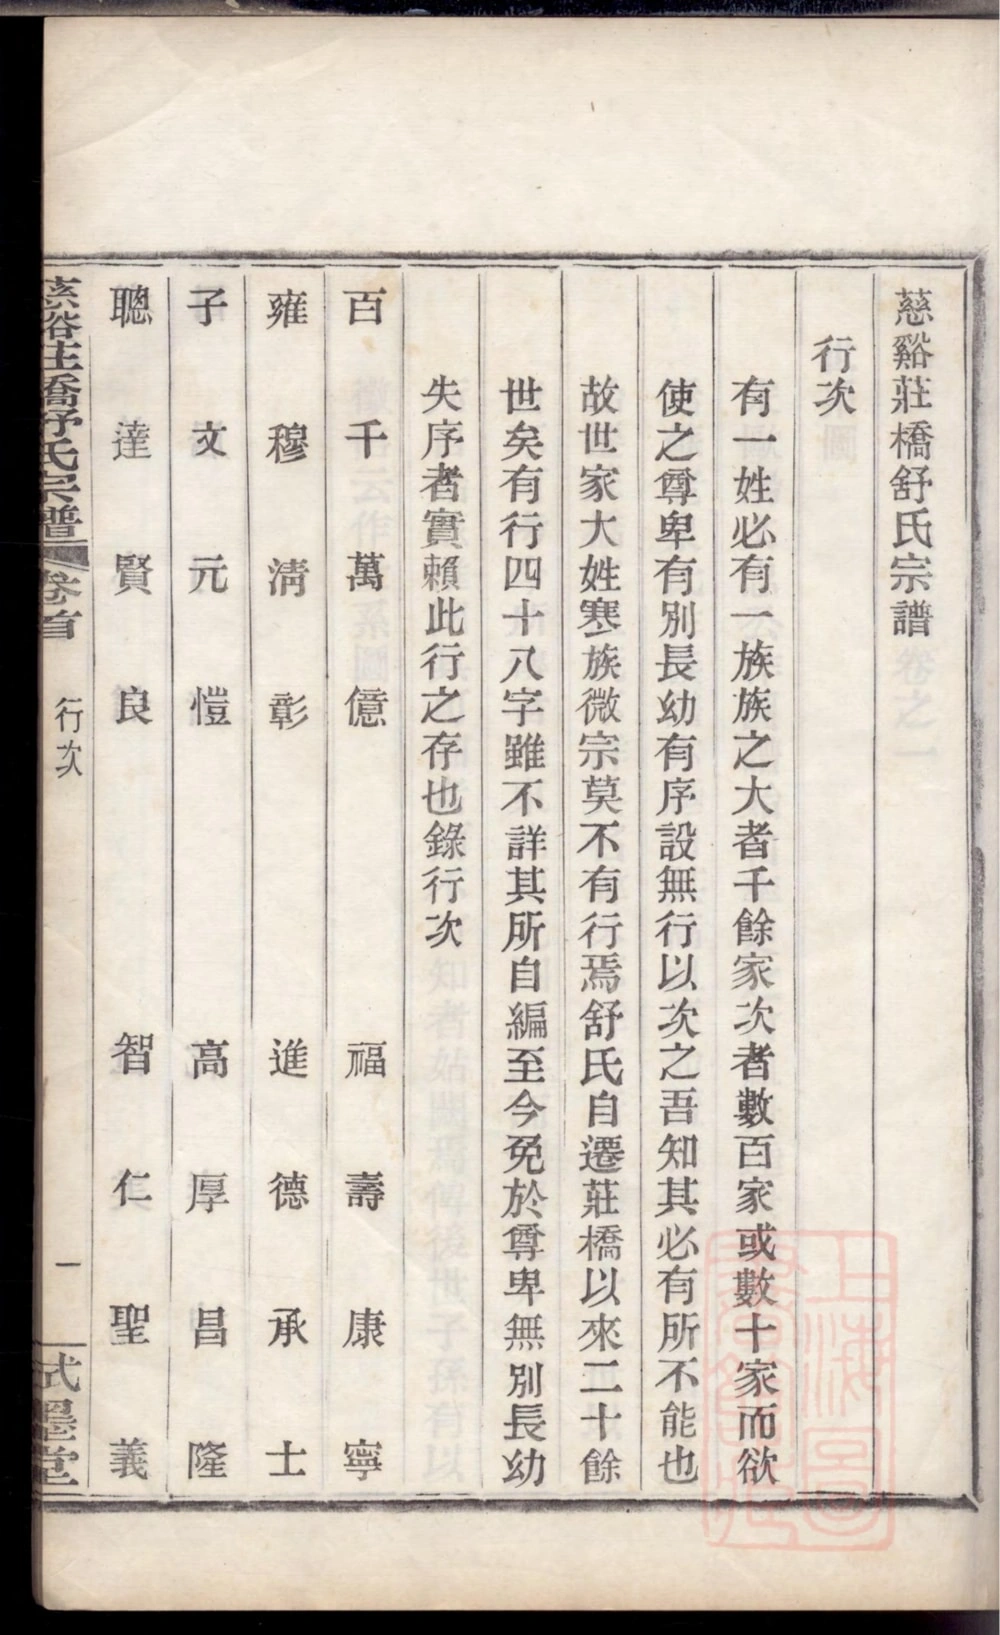 慈谿莊橋舒氏宗譜
行次
有一姓必有一族族之大者千餘家次者數百家或數十家而欲
使之尊卑有別長幼有序設無行以次之吾知其必有所不能也
故世家大姓寒族微宗莫不有行焉舒氏自遷莊橋以來二十餘
世矣有行四十八字雖不詳其所自編至今免於尊卑無別長幼
失序者實賴此行之存也錄行次
百 千 萬 億 福 壽 康 寧
雍 穆 淸 彰 進 德 承 士
子 文 元 愷 高 厚 昌 隆
聰 達 賢 良 智 仁 聖 義
慈谿莊橋舒氏宗譜 卷首 行次 一 式墨堂
上海圖書館藏